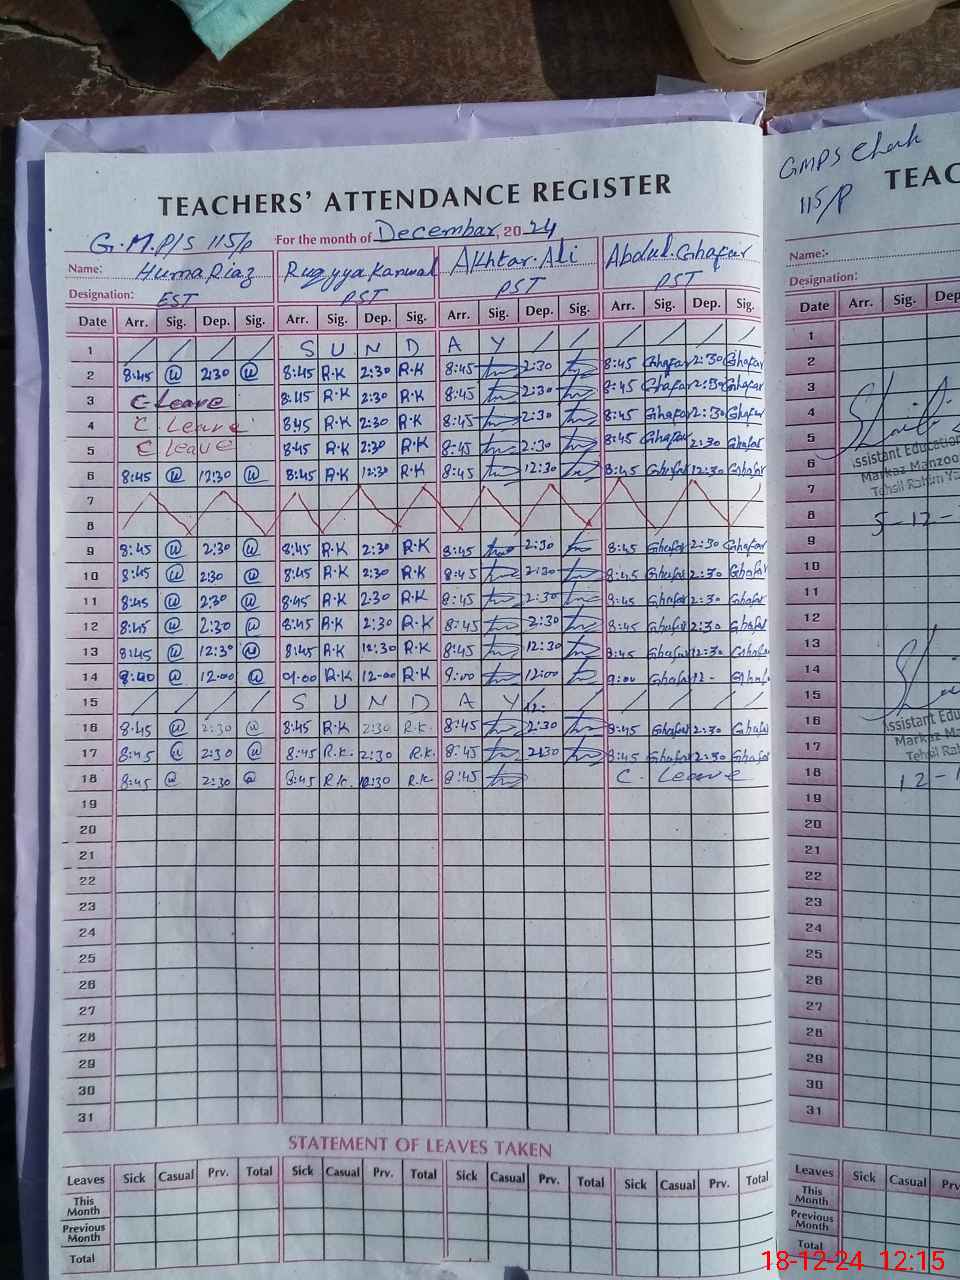 TEACHERS' ATTENDANCE REGISTER
G.M.P/S 115/P For the month of Decembar, 2024
Name: Huma Riaz Ruqyya Kanwal Akhtar Ali Abdul Ghafar
Designation: EST PST PST PST
Date Arr. Sig. Dep. Sig. Arr. Sig. Dep. Sig. Arr. Sig. Dep. Sig. Arr. Sig. Dep. Sig.
1 S U N D A Y
2 8:45 2:30 8:45 R.K 2:30 R.K 8:45 2:30 8:45 Ghafar 2:30 Ghafar
3 C Leave 8:45 R.K 2:30 R.K 8:45 2:30 8:45 Ghafar 2:30 Ghafar
4 C Leave 8:45 R.K 2:30 R.K 8:45 2:30 8:45 Ghafar 2:30 Ghafar
5 C Leave 8:45 R.K 2:30 R.K 8:45 2:30 8:45 Ghafar 2:30 Ghafar
6 8:45 12:30 8:45 R.K 12:30 R.K 8:45 12:30 8:45 Ghafar 12:30 Ghafar
7
8
9 8:45 2:30 8:45 R.K 2:30 R.K 8:45 2:30 8:45 Ghafar 2:30 Ghafar
10 8:45 2:30 8:45 R.K 2:30 R.K 8:45 2:30 8:45 Ghafar 2:30 Ghafar
11 8:45 2:30 8:45 R.K 2:30 R.K 8:45 2:30 8:45 Ghafar 2:30 Ghafar
12 8:45 2:30 8:45 R.K 2:30 R.K 8:45 2:30 8:45 Ghafar 2:30 Ghafar
13 8:45 12:30 8:45 R.K 12:30 R.K 8:45 12:30 8:45 Ghafar 12:30 Ghafar
14 9:00 12:00 09.00 R.K 12:00 R.K 9:00 12:00 9:00 Ghafar 12-
15 S U N D A Y 12:
16 8:45 2:30 8:45 R.K 2:30 R.K. 8:45 2:30 8:45 Ghafar 2:30 Ghafar
17 8:45 2:30 8:45 R.K. 2:30 R.K. 8:45 2:30 8:45 Ghafar 2:30 Ghafar
18 8:45 2:30 8:45 R.K. 12:30 R.K. 8:45 C. Leave
19
20
21
22
23
24
25
26
27
28
29
30
31
STATEMENT OF LEAVES TAKEN
Leaves Sick Casual Prv. Total Sick Casual Prv. Total Sick Casual Prv. Total Sick Casual Prv. Total
This Month
Previous Month
Total
GMPS Chak
115/P
TEAC
Name:-
Designation:
Date Arr. Sig. Dep
1
2
3
4
5
Assistant Education
6
Markaz Manzoo
Tehsil Rahim Ya
7
8 5-12-
9
10
11
12
13
14
15
16
Assistant Educa
Markaz Ma
17
Tehsil Rah
18 12-1
19
20
21
22
23
24
25
26
27
28
29
30
31
Leaves Sick Casual Prv
This Month
Previous Month
Total
18-12-24 12:15